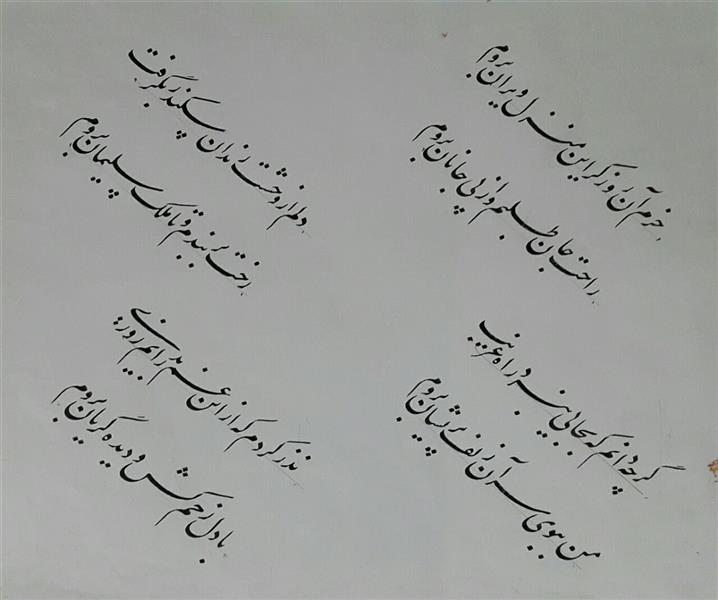 خرم آن روز کز این منزل ویران بروم
راحت جان طلبم وز پی جانان بروم
دلم از وحشت زندان سکندر بگرفت
رخت بربندم و تا ملک سلیمان بروم
گرچه دانم که بجایی نبرد راه غریب
من ببوی سر آن زلف پریشان بروم
نذر کردم که از این غم بدر آیم روزی
با دل زخم کش و دیده گریان بروم